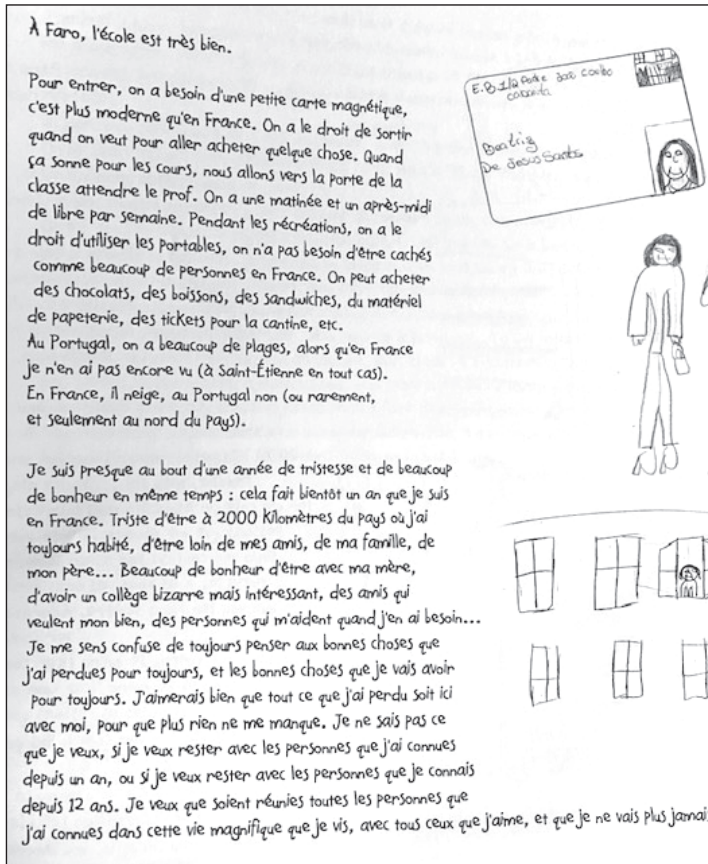 À Faro, l'école est très bien.
Pour entrer, on a besoin d'une petite carte magnétique,
c'est plus moderne qu'en France. On a le droit de sortir
quand on veut pour aller acheter quelque chose. Quand
ça sonne pour les cours, nous allons vers la porte de la
classe attendre le prof. On a une matinée et un après-midi
de libre par semaine. Pendant les récréations, on a le
droit d'utiliser les portables, on n'a pas besoin d'être cachés
comme beaucoup de personnes en France. On peut acheter
des chocolats, des boissons, des sandwiches, du matériel
de papeterie, des tickets pour la cantine, etc.
Au Portugal, on a beaucoup de plages, alors qu'en France
je n'en ai pas encore vu (à Saint-Étienne en tout cas).
En France, il neige, au Portugal non (ou rarement,
et seulement au nord du pays).
Je suis presque au bout d'une année de tristesse et de beaucoup
de bonheur en même temps : cela fait bientôt un an que je suis
en France. Triste d'être à 2000 kilomètres du pays où j'ai
toujours habité, d'être loin de mes amis, de ma famille, de
mon père... Beaucoup de bonheur d'être avec ma mère,
d'avoir un collège bizarre mais intéressant, des amis qui
veulent mon bien, des personnes qui m'aident quand j'en ai besoin...
Je me sens confuse de toujours penser aux bonnes choses que
j'ai perdues pour toujours, et les bonnes choses que je vais avoir
pour toujours. J'aimerais bien que tout ce que j'ai perdu soit ici
avec moi, pour que plus rien ne me manque. Je ne sais pas ce
que je veux, si je veux rester avec les personnes que j'ai connues
depuis un an, ou si je veux rester avec les personnes que je connais
depuis 12 ans. Je veux que soient réunies toutes les personnes que
j'ai connues dans cette vie magnifique que je vis, avec tous ceux que j'aime, et que je ne vais plus jamai
E.B 1/2 Padre João Coelho
Beatriz
De Jesus Santos